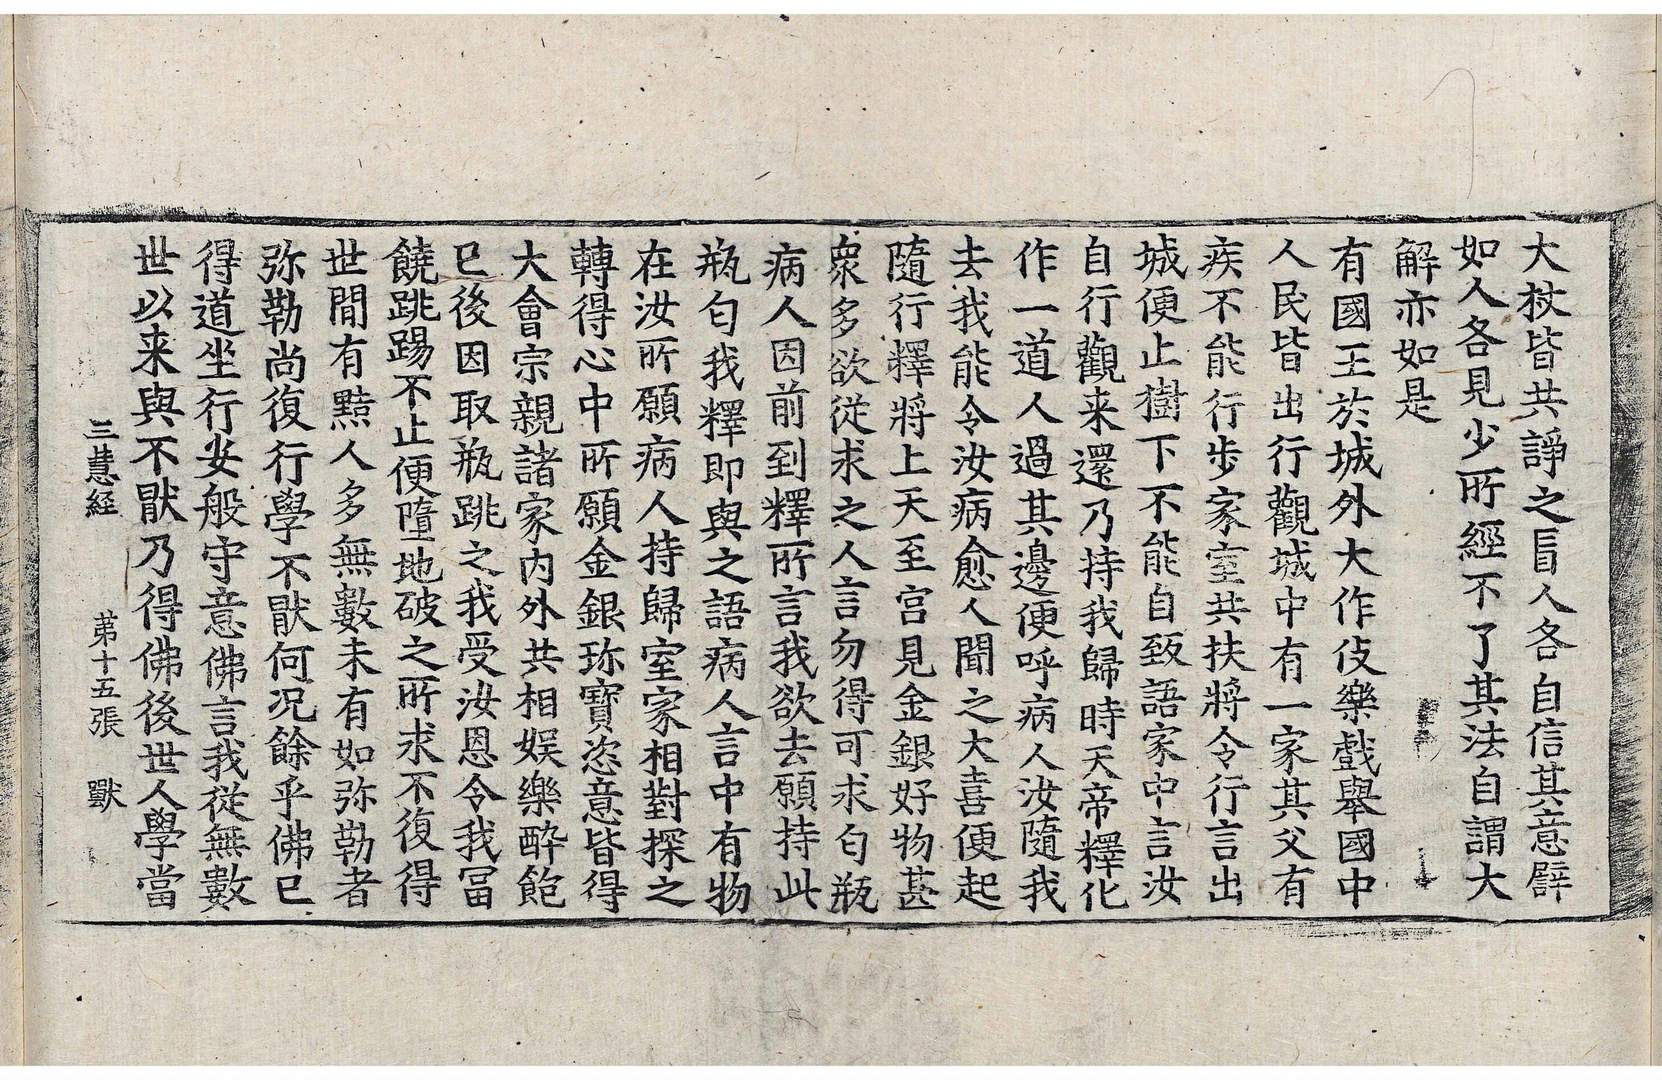 大杖皆共諍之盲人各自信其意譬
如人各見少所經不了其法自謂大
解亦如是
有國王於城外大作伎樂戲舉國中
人民皆出行觀城中有一家其父有
疾不能行步家室共扶將令行言出
城便止樹下不能自致語家中言汝
自行觀来還乃持我歸時天帝釋化
作一道人過其邊便呼病人汝隨我
去我能令汝病愈人聞之大喜便起
隨行釋將上天至宫見金銀好物甚
衆多欲從求之人言勿得可求匂瓶
病人因前到釋所言我欲去願持此
瓶匂我釋即與之語病人言中有物
在汝所願病人持歸室家相對探之
轉得心中所願金銀珎寶恣意皆得
大會宗親諸家內外共相娱樂醉飽
已後因取瓶跳之我受汝恩令我冨
饒跳踢不止便墮地破之所求不復得
世間有黠人多無數未有如弥勒者
弥勒尚復行學不猒何况餘乎佛已
得道坐行安般守意佛言我從無數
世以来與不猒乃得佛後世人學當
三慧經 第十五張 獸